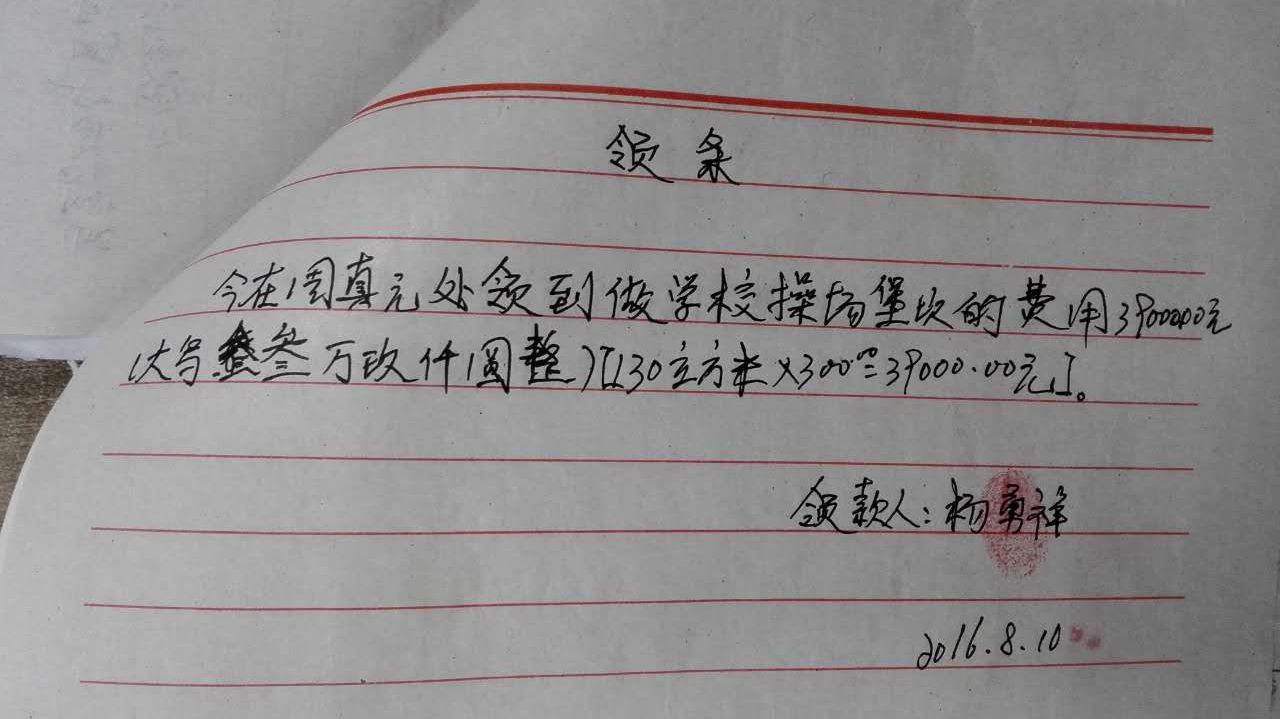 领条
今在周真元处领到做学校操场堡坎的费用39000.00元
(大写叁万玖仟圆整)[130立方米×300.00=39000.00元]。
领款人:杨勇祥
2016.8.10